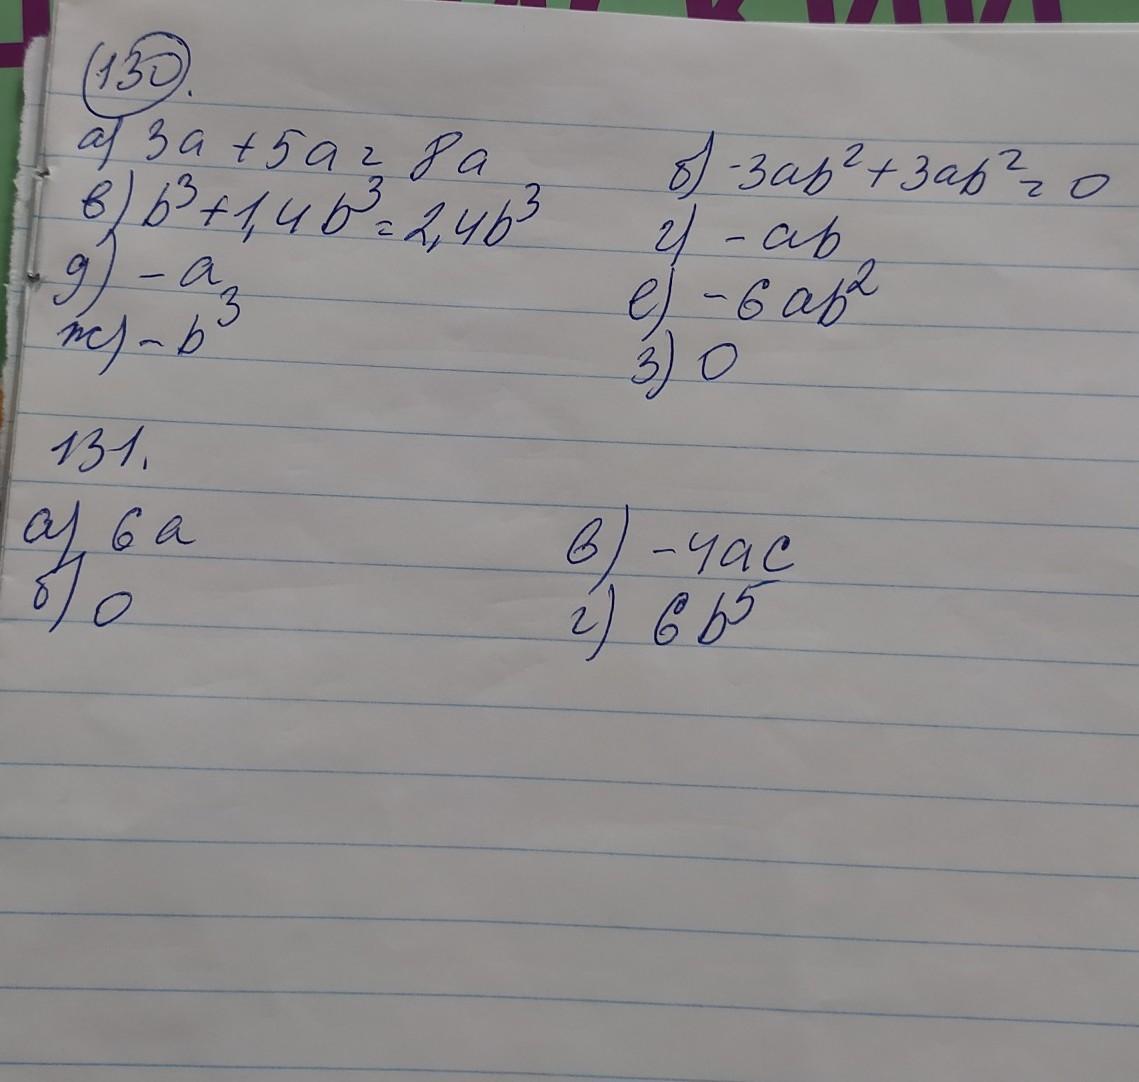 130.
а) 3a + 5a = 8a
б) -3ab² + 3ab² = 0
в) b³ + 1,4b³ = 2,4b³
г) -ab
д) -a
е) -6ab²
ж) -b³
з) 0
131.
а) 6a
в) -4ac
б) 0
г) 6b⁵